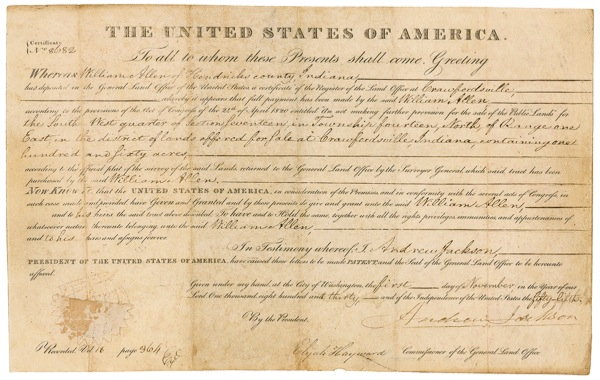 THE UNITED STATES OF AMERICA.
Certificate
No. 8682
To all to whom these Presents shall come, Greeting
Whereas William Allen of Hendricks county Indiana
has deposited in the General Land Office of the United States a certificate of the Register of the Land Office at Crawfordsville
whereby it appears that full payment has been made by the said William Allen
according to the provisions of the Act of Congress of the 24th of April 1820 entitled An act making further provision for the sale of the Public Lands for
the South West quarter of Section seventeen in Township fourteen, North, of Range one
East, in the district of lands offered for Sale at Crawfordsville, Indiana, containing one
hundred and sixty acres
according to the official plat of the survey of the said Lands returned to the General Land Office by the Surveyor General, which said tract has been
purchased by the said William Allen
NOW KNOW YE that the UNITED STATES OF AMERICA, in consideration of the Premises and in conformity with the several acts of Congress, in
such case made and provided, have Given and Granted and by these presents do give and grant unto the said William Allen
and to his heirs the said tract above described. To have and to Hold the same, together with all the rights, privileges, immunities, and appurtenances of
whatsoever nature thereunto belonging unto the said William Allen
and to his heirs and assigns forever
In Testimony whereof I, Andrew Jackson,
PRESIDENT OF THE UNITED STATES OF AMERICA, have caused these letters to be made PATENT, and the Seal of the General Land Office to be hereunto
affixed.
Given under my hand at the City of Washington, the first day of November, in the Year of our
Lord One thousand eight hundred and thirty and of the Independence of the United States the fifty fifth.
By the President.
Andrew Jackson
Recorded. Vol. 16 page 364
Elijah Hayward Commissioner of the General Land Office